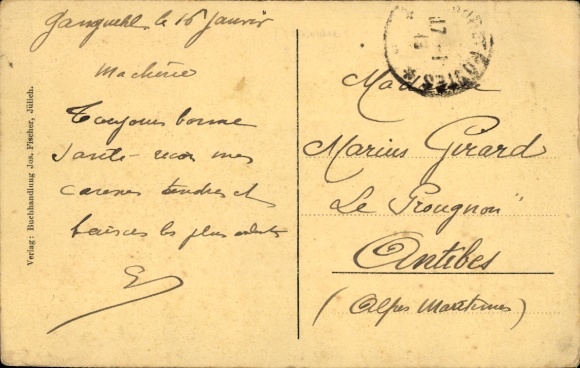 le 16 Janvier
Ma chérie
Toujours bonne
santé - reçois mes
caresses tendres et
baisers les plus ardents
Verlag: Buchhandlung Jos. Fischer, Jülich.
Madame
Marius Girard
Le Prougnon"
Antibes
(Alpes Maritimes)